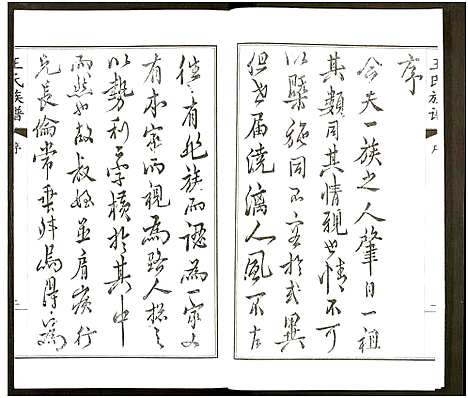 王氏族譜
序
序
今夫一族之人肇自一祖
其類同其情親也情不可
以槩施同不容於或異
但世届澆漓人風不古
往往有非族而認為一家又
有本家而視為路人揆之
以勢利之字橫於其中
而然也故叔侄並肩
兄長倫常乖舛焉得為
王氏族譜
序